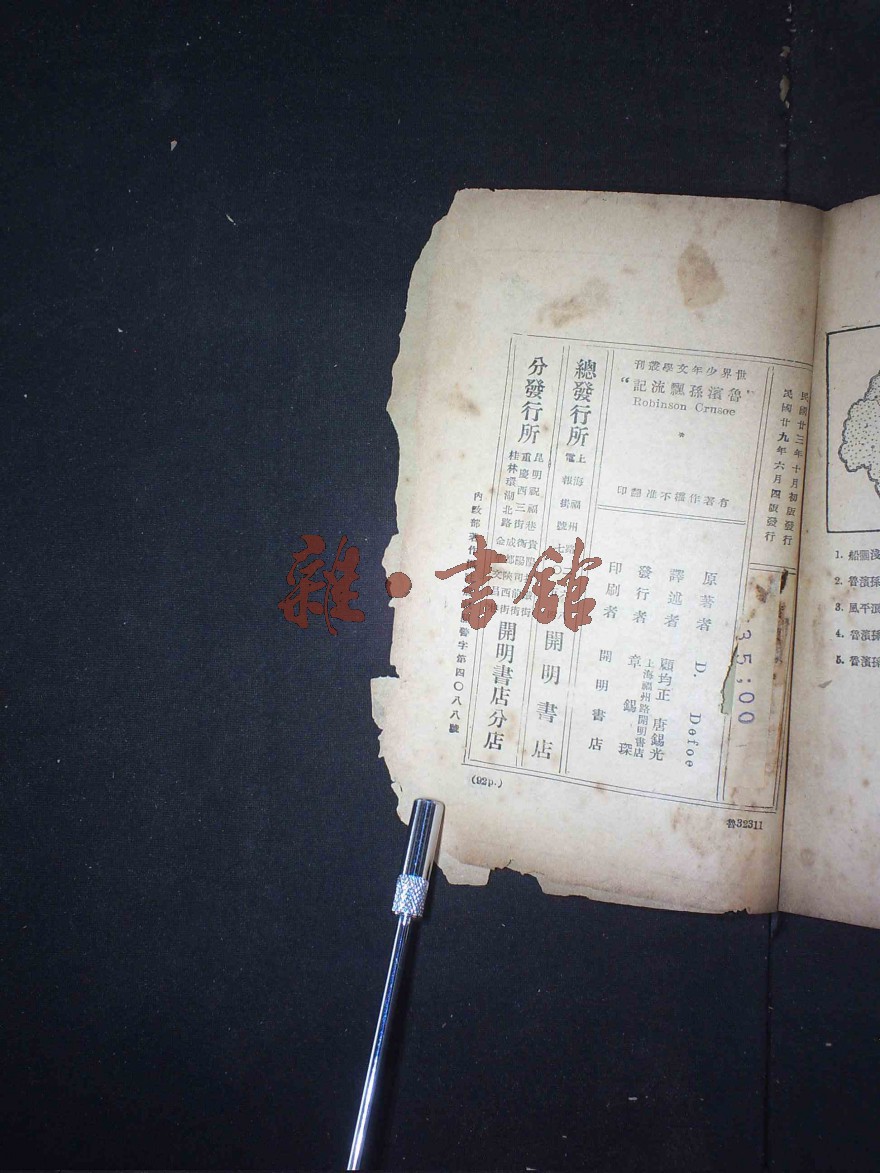 民國廿三年十月初版發行
民國廿九年六月四版發行
35:00
世界少年文學叢刊
“魯濱孫飄流記”
Robinson Crusoe
有著作權不准翻印
原著者 D. Defoe
譯述者 顧均正 唐錫光
發行者 上海福州路開明書店 章錫琛
印刷者 開明書店
總發行所 上海福州路 開明書店
電報掛號七
分發行所 開明書店分店
內政部著作
警字第四〇八八號
(92p.)
魯32311
雜·書館
1. 船
2. 魯濱孫
3. 風平浪
4. 魯濱孫
5. 魯濱孫